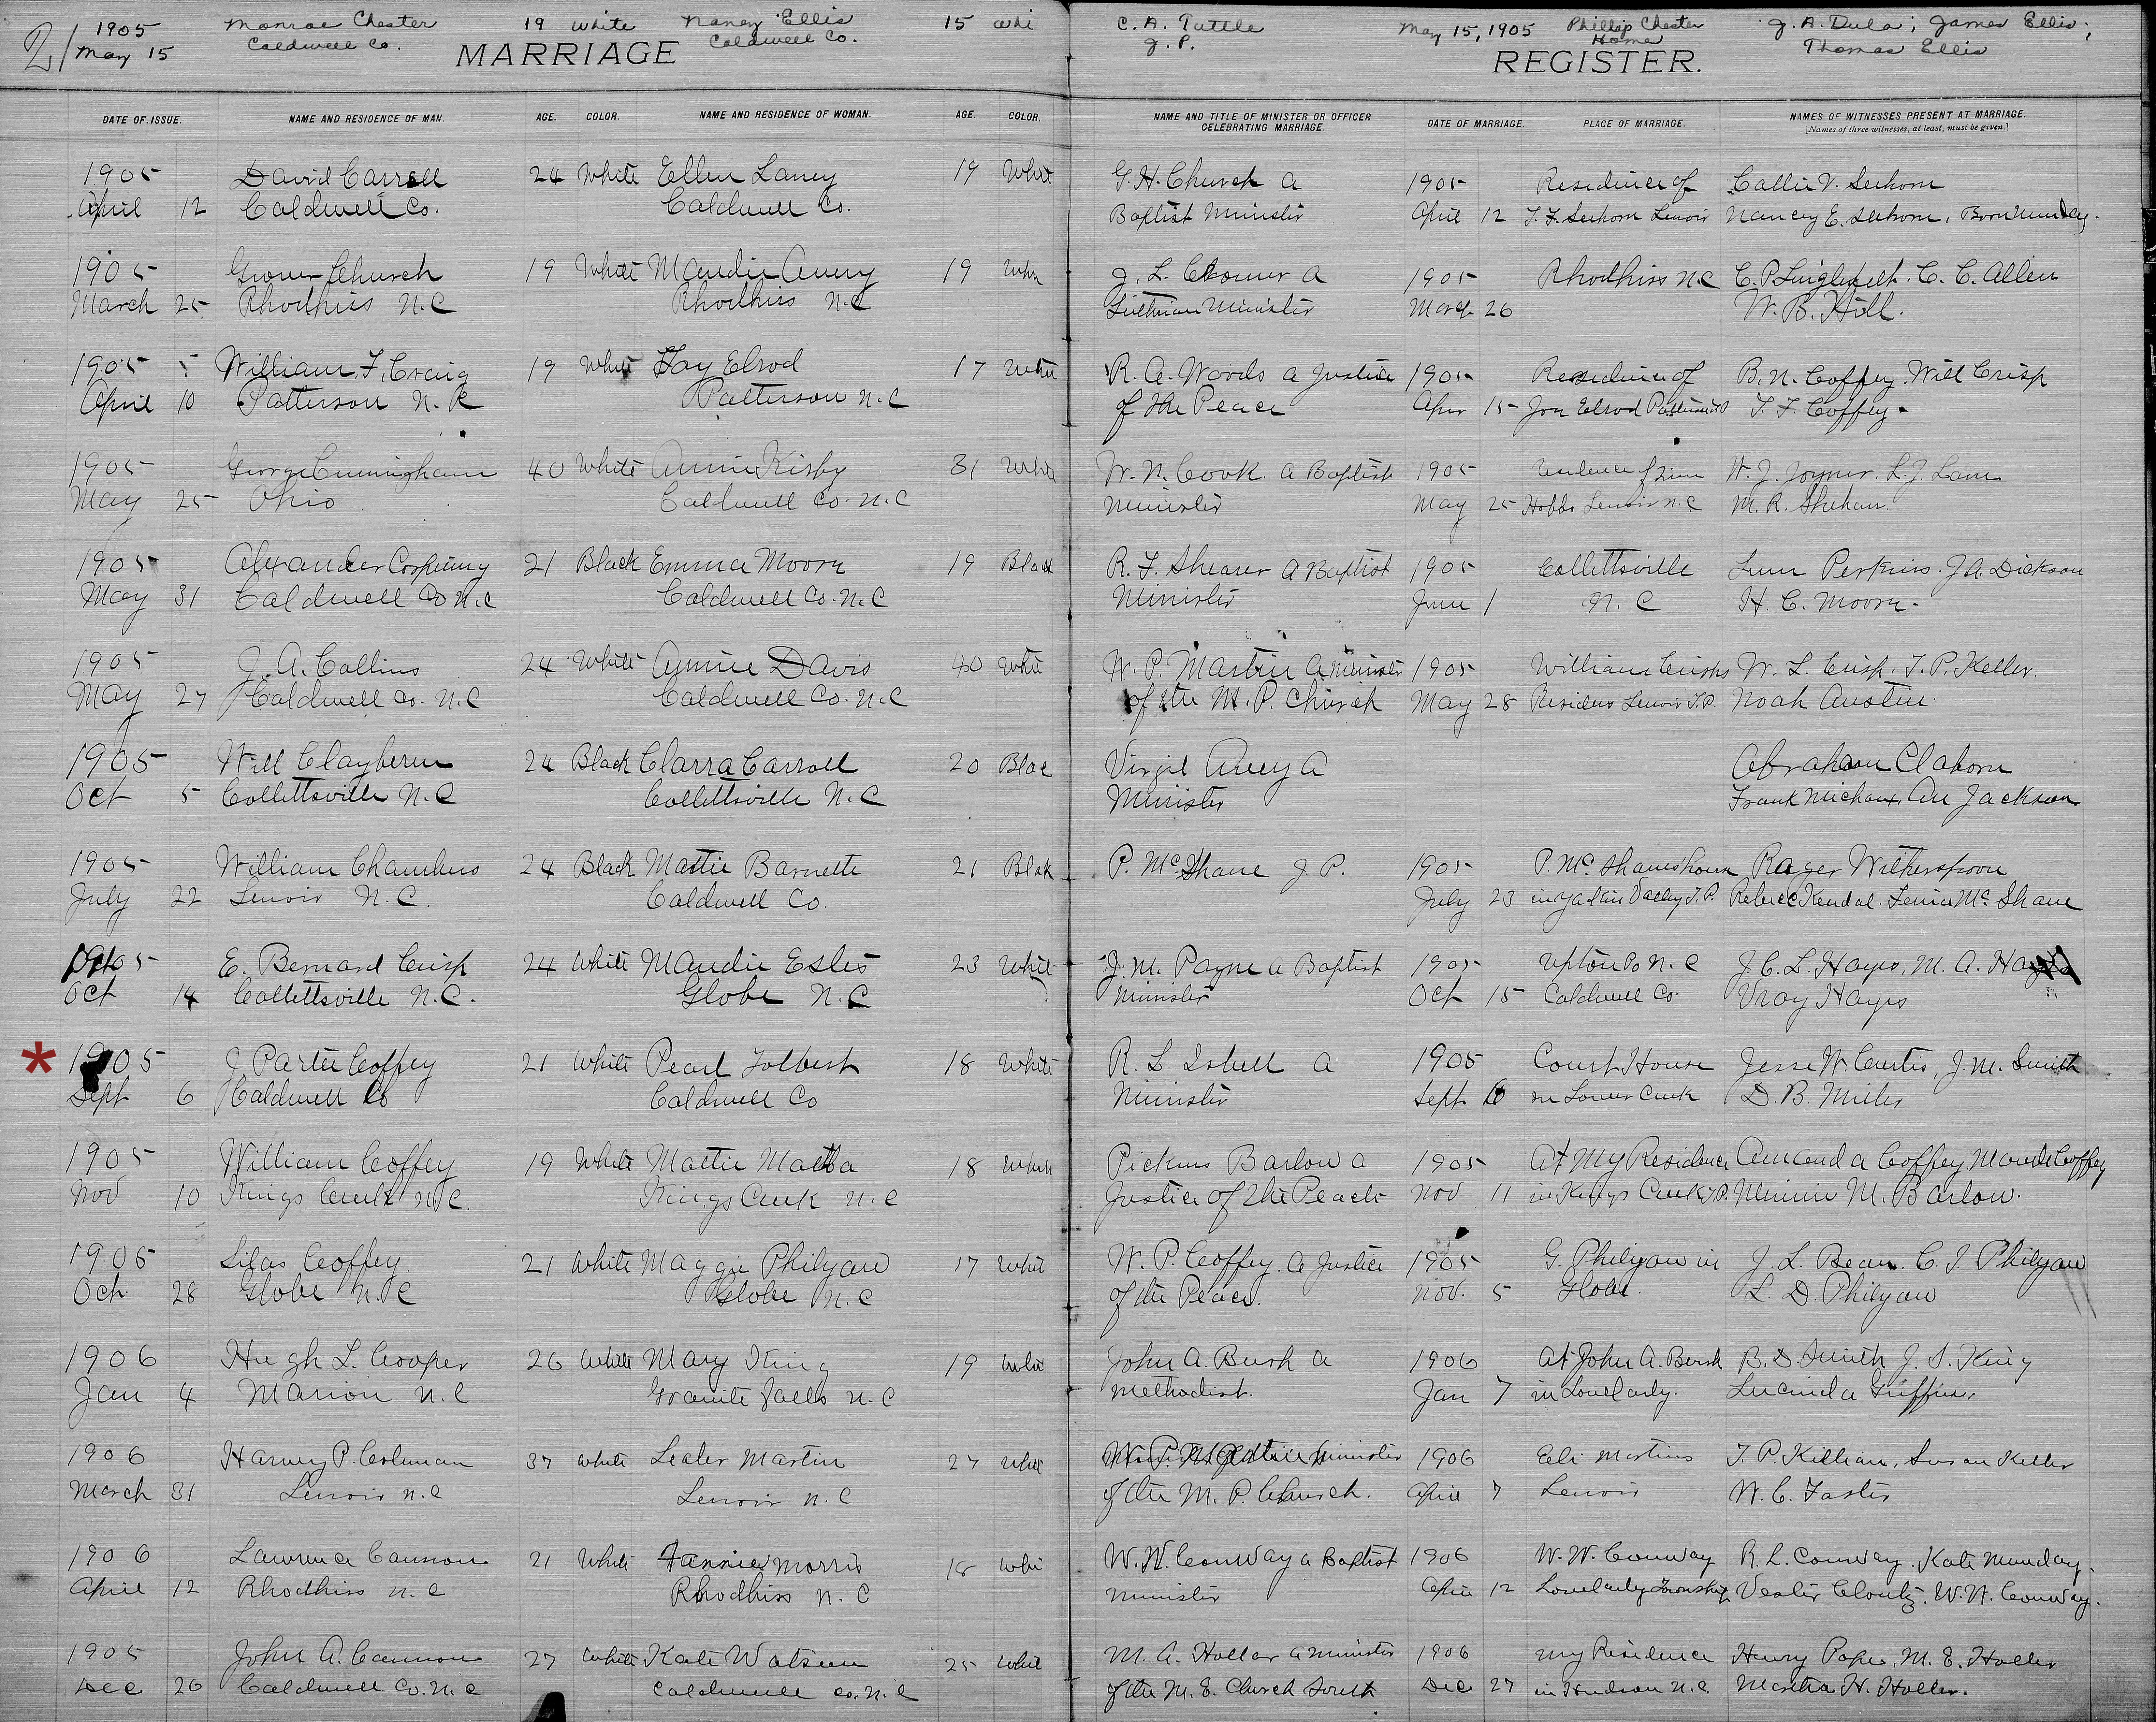 21 1905 Monroe Chester 19 White Nancy Ellis 15 Whi C. A. Tuttle May 15, 1905 Phillip Chester J. A. Dula; James Ellis;
May 15 Caldwell Co. Caldwell Co. J. P. Home Thomas Ellis
MARRIAGE REGISTER.
DATE OF ISSUE. NAME AND RESIDENCE OF MAN. AGE. COLOR. NAME AND RESIDENCE OF WOMAN. AGE. COLOR. NAME AND TITLE OF MINISTER OR OFFICER CELEBRATING MARRIAGE. DATE OF MARRIAGE. PLACE OF MARRIAGE. NAMES OF WITNESSES PRESENT AT MARRIAGE.
[Names of three witnesses, at least, must be given.]
1905 David Carrell 24 White Ellen Laney 19 Whit G. H. Church a 1905 Residence of Callie V. Seehorn
April 12 Caldwell Co. Caldwell Co. Baptist Minister April 12 T. F. Seehorn Lenoir Nancy E. Seehorn,
1905 Grover Church 19 White Maudie Avery 19 Whi J. L. Cromer a 1905 Rhodhiss N.C C. C. Allen
March 25 Rhodhiss N.C Rhodhiss N.C Minister March 26 W. B. Hill.
1905 William F. Craig 19 Whit Fay Elrod 17 Whit R. A. Woods a Justice 1905 Residence of B. N. Coffey Will Crisp
April 10 Patterson N.C Patterson N.C of the Peace Apr 15 Elrod T. F. Coffey
1905 George Cunningham 40 White Annie Kirby 31 White W. N. Cook a Baptist 1905 Residence of W. J. Joyner. L. J. Lane
May 25 Ohio Caldwell Co. N.C Minister May 25 Hobbs Lenoir N.C M. R. Shehan
1905 Alexander Corpening 21 Black Emma Moore 19 Black R. F. Shearer a Baptist 1905 Collettsville Lum Perkins. J. A. Dickson
May 31 Caldwell Co N.C Caldwell Co. N.C Minister June 1 N. C H. C. Moore
1905 J. A. Collins 24 White Annie Davis 40 White W. P. Martin a Minister 1905 William Crisps W. L. Crisp. T. P. Keller.
May 27 Caldwell Co. N.C Caldwell Co. N.C of the M. P. Church May 28 Lenoir T.P. Noah Austin
1905 Will Claybern 24 Black Clarra Carroll 20 Blac Virgil Avery a Abraham Claborn
Oct 5 Collettsville N.C Collettsville N.C Minister Frank Michaux, Jackson
1905 William Chambers 24 Black Mattie Barnette 21 Blak P. McShane J. P. 1905 P. Mc Shanes house Roger Witherspoon
July 22 Lenoir N.C. Caldwell Co. July 23 in Yadkin Valley T.P. Kendal. McShane
1905 E. Bernard Crisp 24 White Maudie Estes 23 White J. M. Payne a Baptist 1905 Upton Po N.C J. C. L. Hayes, M. A. Hayes
Oct 14 Collettsville N.C. Globe N.C Minister Oct 15 Caldwell Co. Vray Hayes
* 1905 J Parter Coffey 21 White Pearl Tolbert 18 White R. L. Isbell a 1905 Court House Jesse W. Curtis, J. M. Smith
Sept 6 Caldwell Co Caldwell Co Minister Sept 6 in Lower Creek D. B. Miller
1905 William Coffey 19 White Mattie 18 White Pickens Barlow a 1905 At My Residence Amanda Coffey, Maude Coffey
Nov 10 Kings Creek N.C. Kings Creek N.C Justice of the Peace Nov 11 in Kings Creek T.P. Minnie M. Barlow.
1905 Silas Coffey 21 White Maggie Philyaw 17 Whit W. P. Coffey a Justice 1905 G. Philyaw in J. L. Bean. C. J. Philyaw
Oct. 28 Globe N.C Globe N.C of the Peace. Nov. 5 Globe. L. D. Philyaw
1906 Hugh L. Cooper 26 White Mary King 19 Whit John A. Bush a 1906 At John A. Bush B. D. Smith J. S. King
Jan 4 Marion N.C Granite Falls N.C Methodist. Jan 7 in Lovelady. Lucinda Griffin,
1906 Harvey P. Coleman 37 White Martin 27 Whit W. P. Minister 1906 Eli Martins T. P. Killian, Susan Keller
March 31 Lenoir N.C Lenoir N.C of the M. P. Church. April 7 Lenoir W. C. Foster
1906 Lawrence Cannon 21 White Fannie Morris 18 Whi W. W. Conway a Baptist 1906 W. W. Conway R. L. Conway. Kate Munday.
April 12 Rhodhiss N.C Rhodhiss N.C Minister April 12 Lovelady Township W. W. Conway.
1905 John A. Cannon 27 White Kate Watson 25 Whit M. A. Holler a Minister 1906 My Residence Henry Pope, M. E. Holler
Dec 26 Caldwell Co. N.C Caldwell Co. N.C of the M. E. Church South Dec 27 in Hudson N.C. Martha H. Holler.